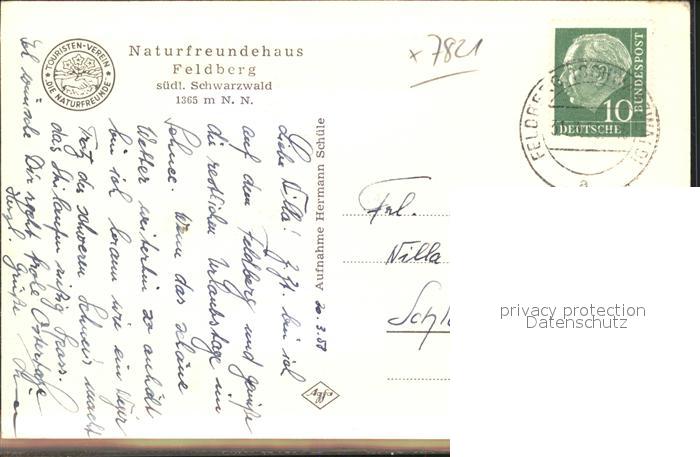 TOURISTEN-VEREIN
"DIE NATURFREUNDE"
Naturfreundehaus
Feldberg
südl. Schwarzwald
1365 m N. N.
x 7821
10
DEUTSCHE
BUNDESPOST
FELDBERG
a
Aufnahme Hermann Schüle
Agfa
20.3.58
Liebe Villa! Z. Zt. bin ich
auf dem Feldberg und genieße
die restlichen Urlaubstage im
Schnee. Wenn das schöne
Wetter weiterhin so anhält
bin ich braun wie ein
Trotz des schweren Schnees macht
das Skilaufen riesig Spass.
Ich wünsche Dir recht frohe Ostertage
Herzl. Grüße
Frl.
Villa
Schl
privacy protection
Datenschutz